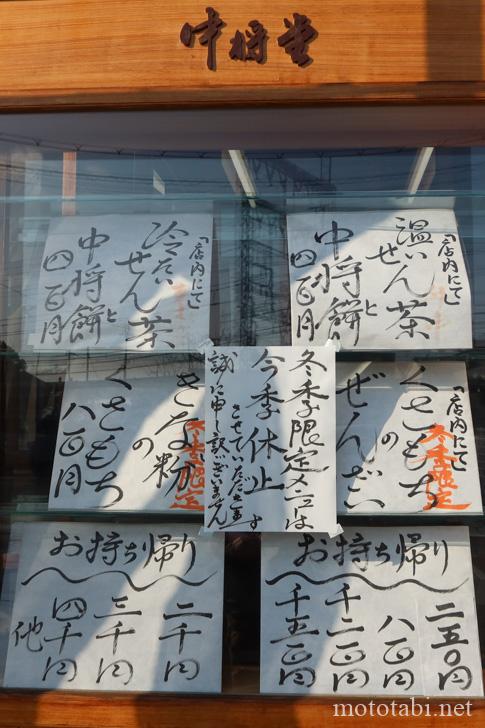 中将堂
「店内にて
温いせん茶
と
中将餅
四百円
「店内にて
冷たい
せん茶
と
中将餅
四百円
「店内にて
冬季限定
くさもち
の
ぜんざい
冬季限定メニューは
今季休止
させていただきます
誠に申し訳ございません
冬季限定
きな粉
の
くさもち
八百円
お持ち帰り
二五〇円
八百円
千二百円
千五百円
お持ち帰り
二千円
三千円
四千円
他
mototabi.net